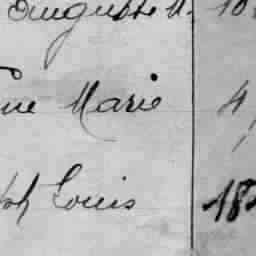 Auguste A. 10
ne Marie 4
ph Louis 18